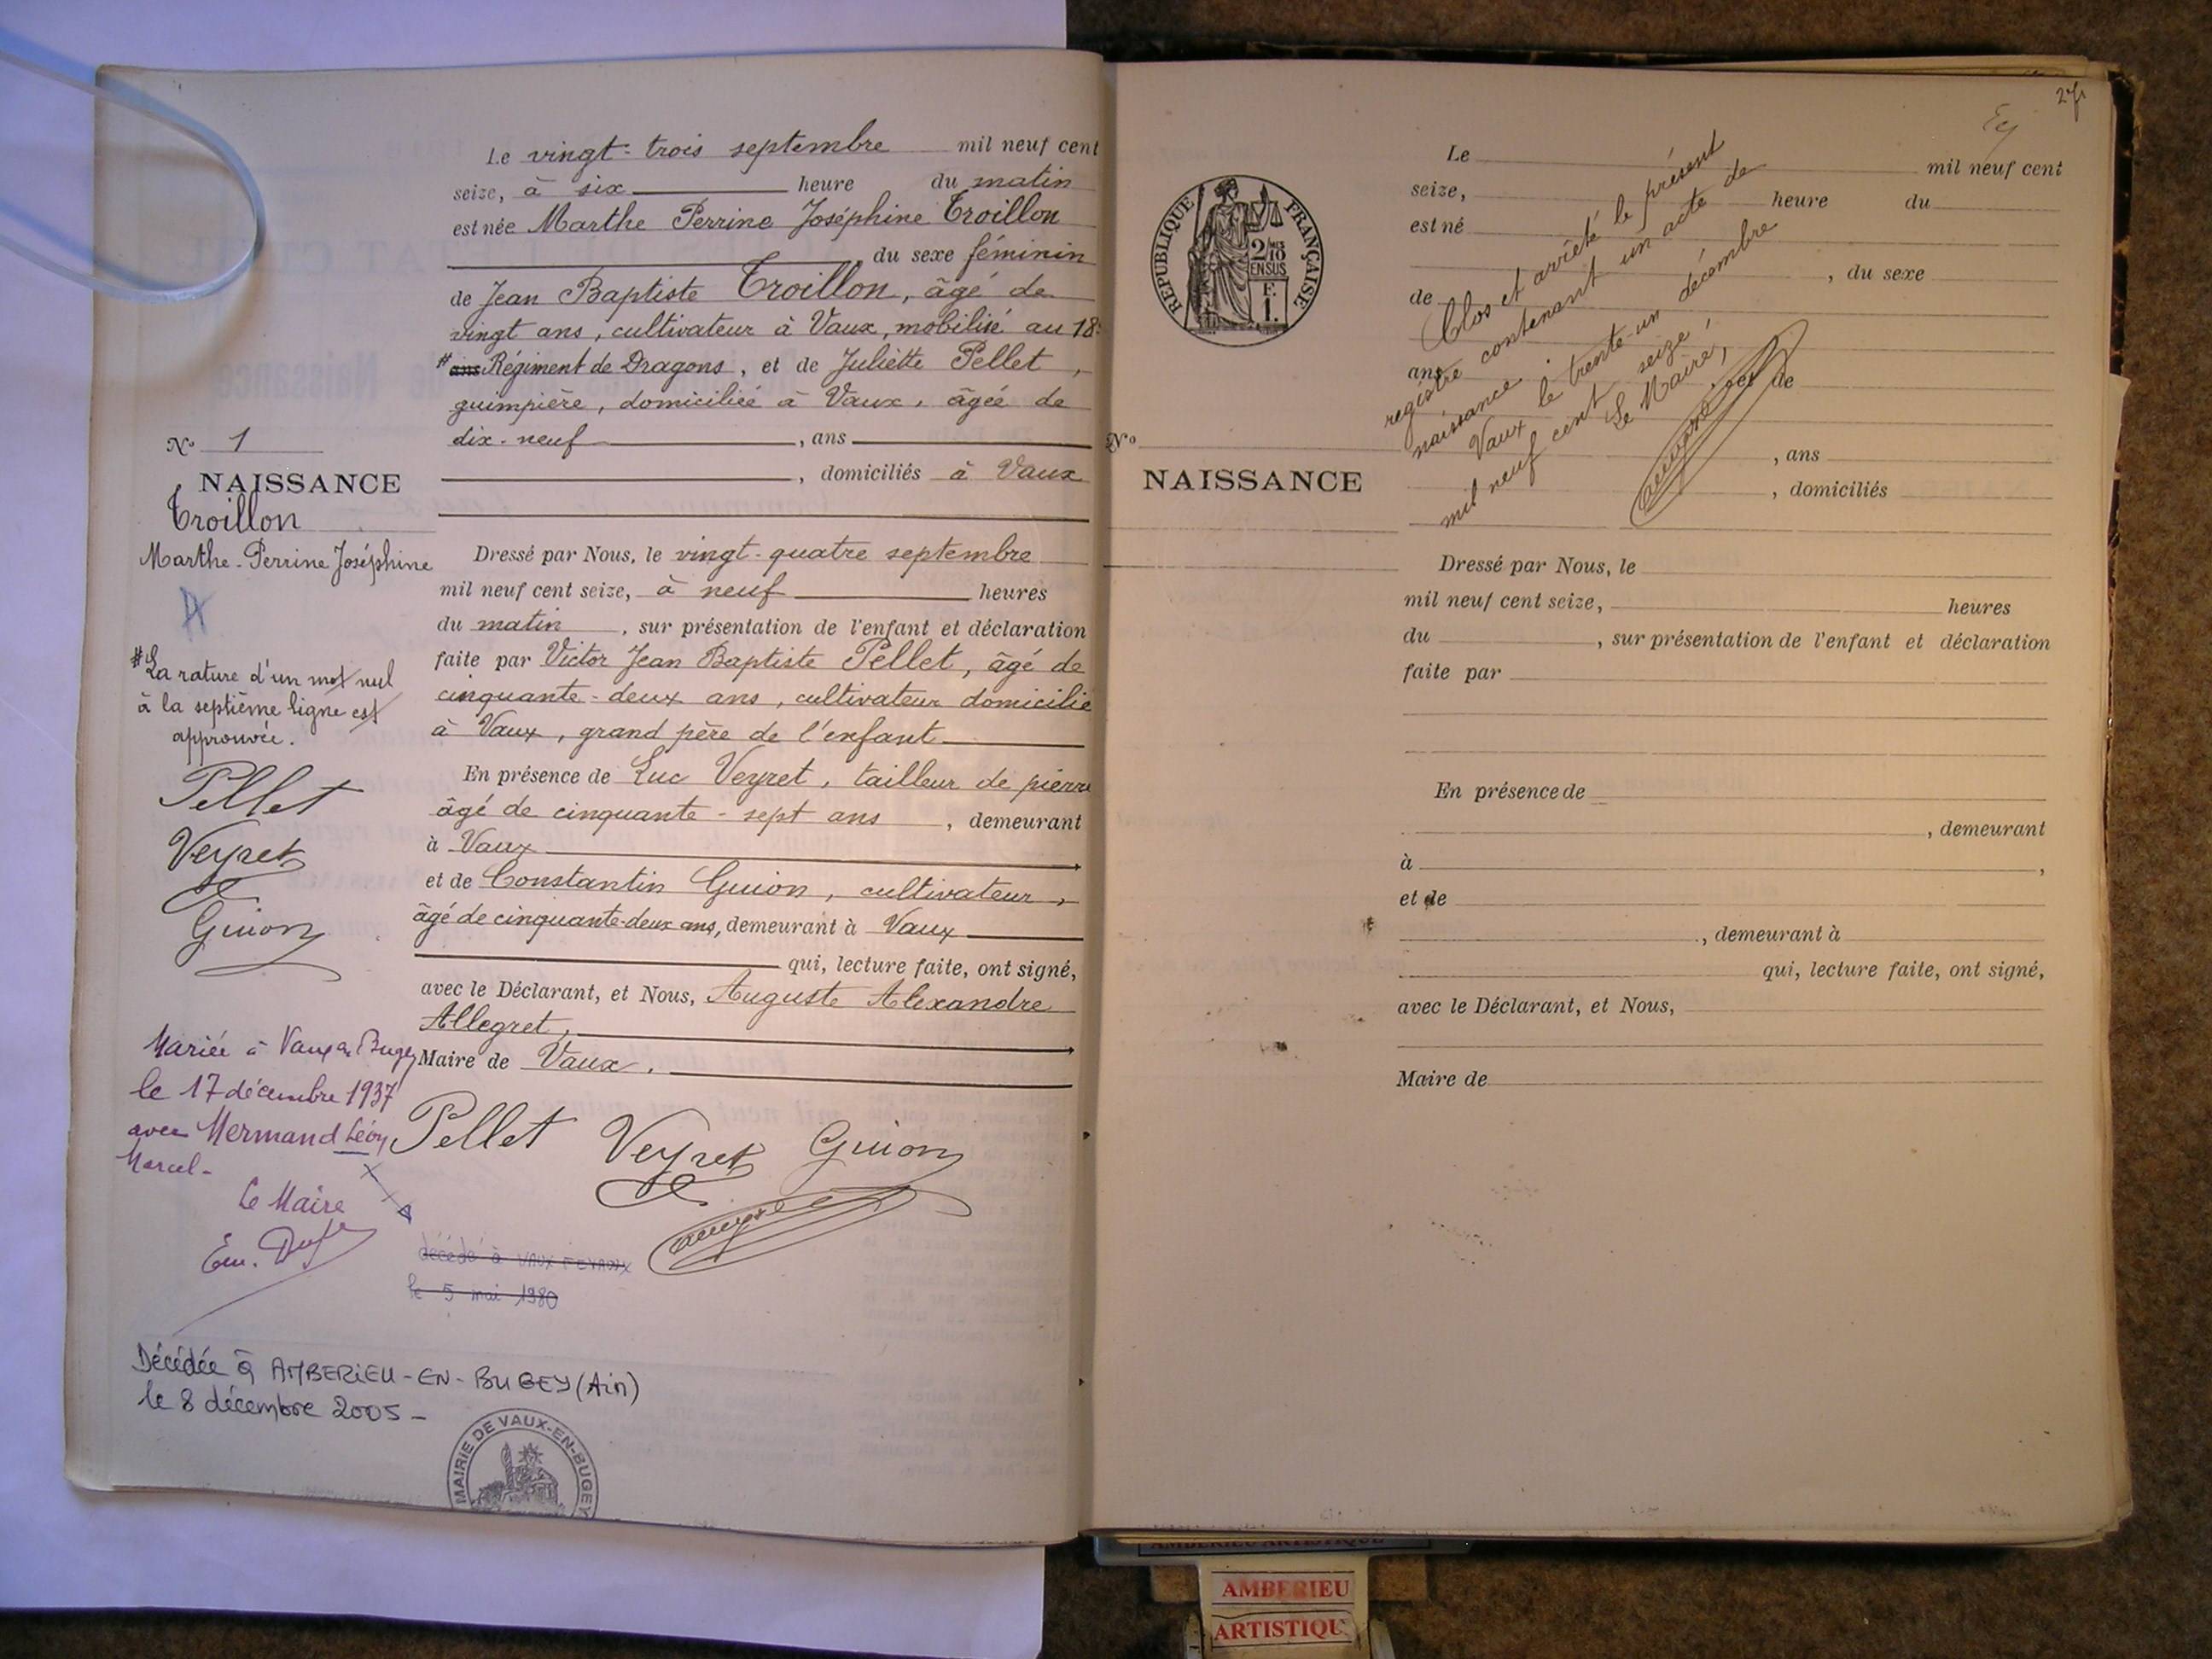 Le vingt-trois septembre mil neuf cent
seize, à six heure du matin
est née Marthe Perrine Joséphine Troillon
, du sexe féminin
de Jean Baptiste Troillon, âgé de
vingt ans, cultivateur à Vaux, mobilisé au 18e
# ans Régiment de Dragons, et de Juliette Pellet,
guimpière, domiciliée à Vaux, âgée de
dix-neuf, ans
, domiciliés à Vaux
N° 1
NAISSANCE
Troillon
Marthe-Perrine Joséphine
Dressé par Nous, le vingt-quatre septembre
mil neuf cent seize, à neuf heures
du matin, sur présentation de l'enfant et déclaration
faite par Victor Jean Baptiste Pellet, âgé de
cinquante-deux ans, cultivateur domicilié
à Vaux, grand père de l'enfant
En présence de Luc Veyret, tailleur de pierre
âgé de cinquante-sept ans, demeurant
à Vaux
et de Constantin Guion, cultivateur,
âgé de cinquante-deux ans, demeurant à Vaux
qui, lecture faite, ont signé,
avec le Déclarant, et Nous, Auguste Alexandre
Allegret,
Maire de Vaux.
Pellet Veyret Guion
# La rature d'un mot nul
à la septième ligne est
approuvée.
Pellet
Veyret
Guion
Mariée à Vaux en Bugey
le 17 décembre 1937
avec Mermand Léon
Marcel-
Le Maire
décédé à VAUX FEVROUX
le 5 mai 1980
Décédée à AMBERIEU-EN-BUGEY (Ain)
le 8 décembre 2005-
MAIRIE DE VAUX-EN-BUGEY
27
Le mil neuf cent
seize, heure du
est né
, du sexe
de
ans
et de
, ans
, domiciliés
Clos et arrêté le présent
registre contenant un acte de
naissance.
Vaux le trente-un décembre
mil neuf cent seize,
Le Maire,
RÉPUBLIQUE FRANÇAISE
2/10 EN SUS
F.
1.
N°
NAISSANCE
Dressé par Nous, le
mil neuf cent seize, heures
du , sur présentation de l'enfant et déclaration
faite par
En présence de
, demeurant
à ,
et de
, demeurant à
qui, lecture faite, ont signé,
avec le Déclarant, et Nous,
Maire de
AMBERIEU ARTISTIQUE
AMBERIEU
ARTISTIQU